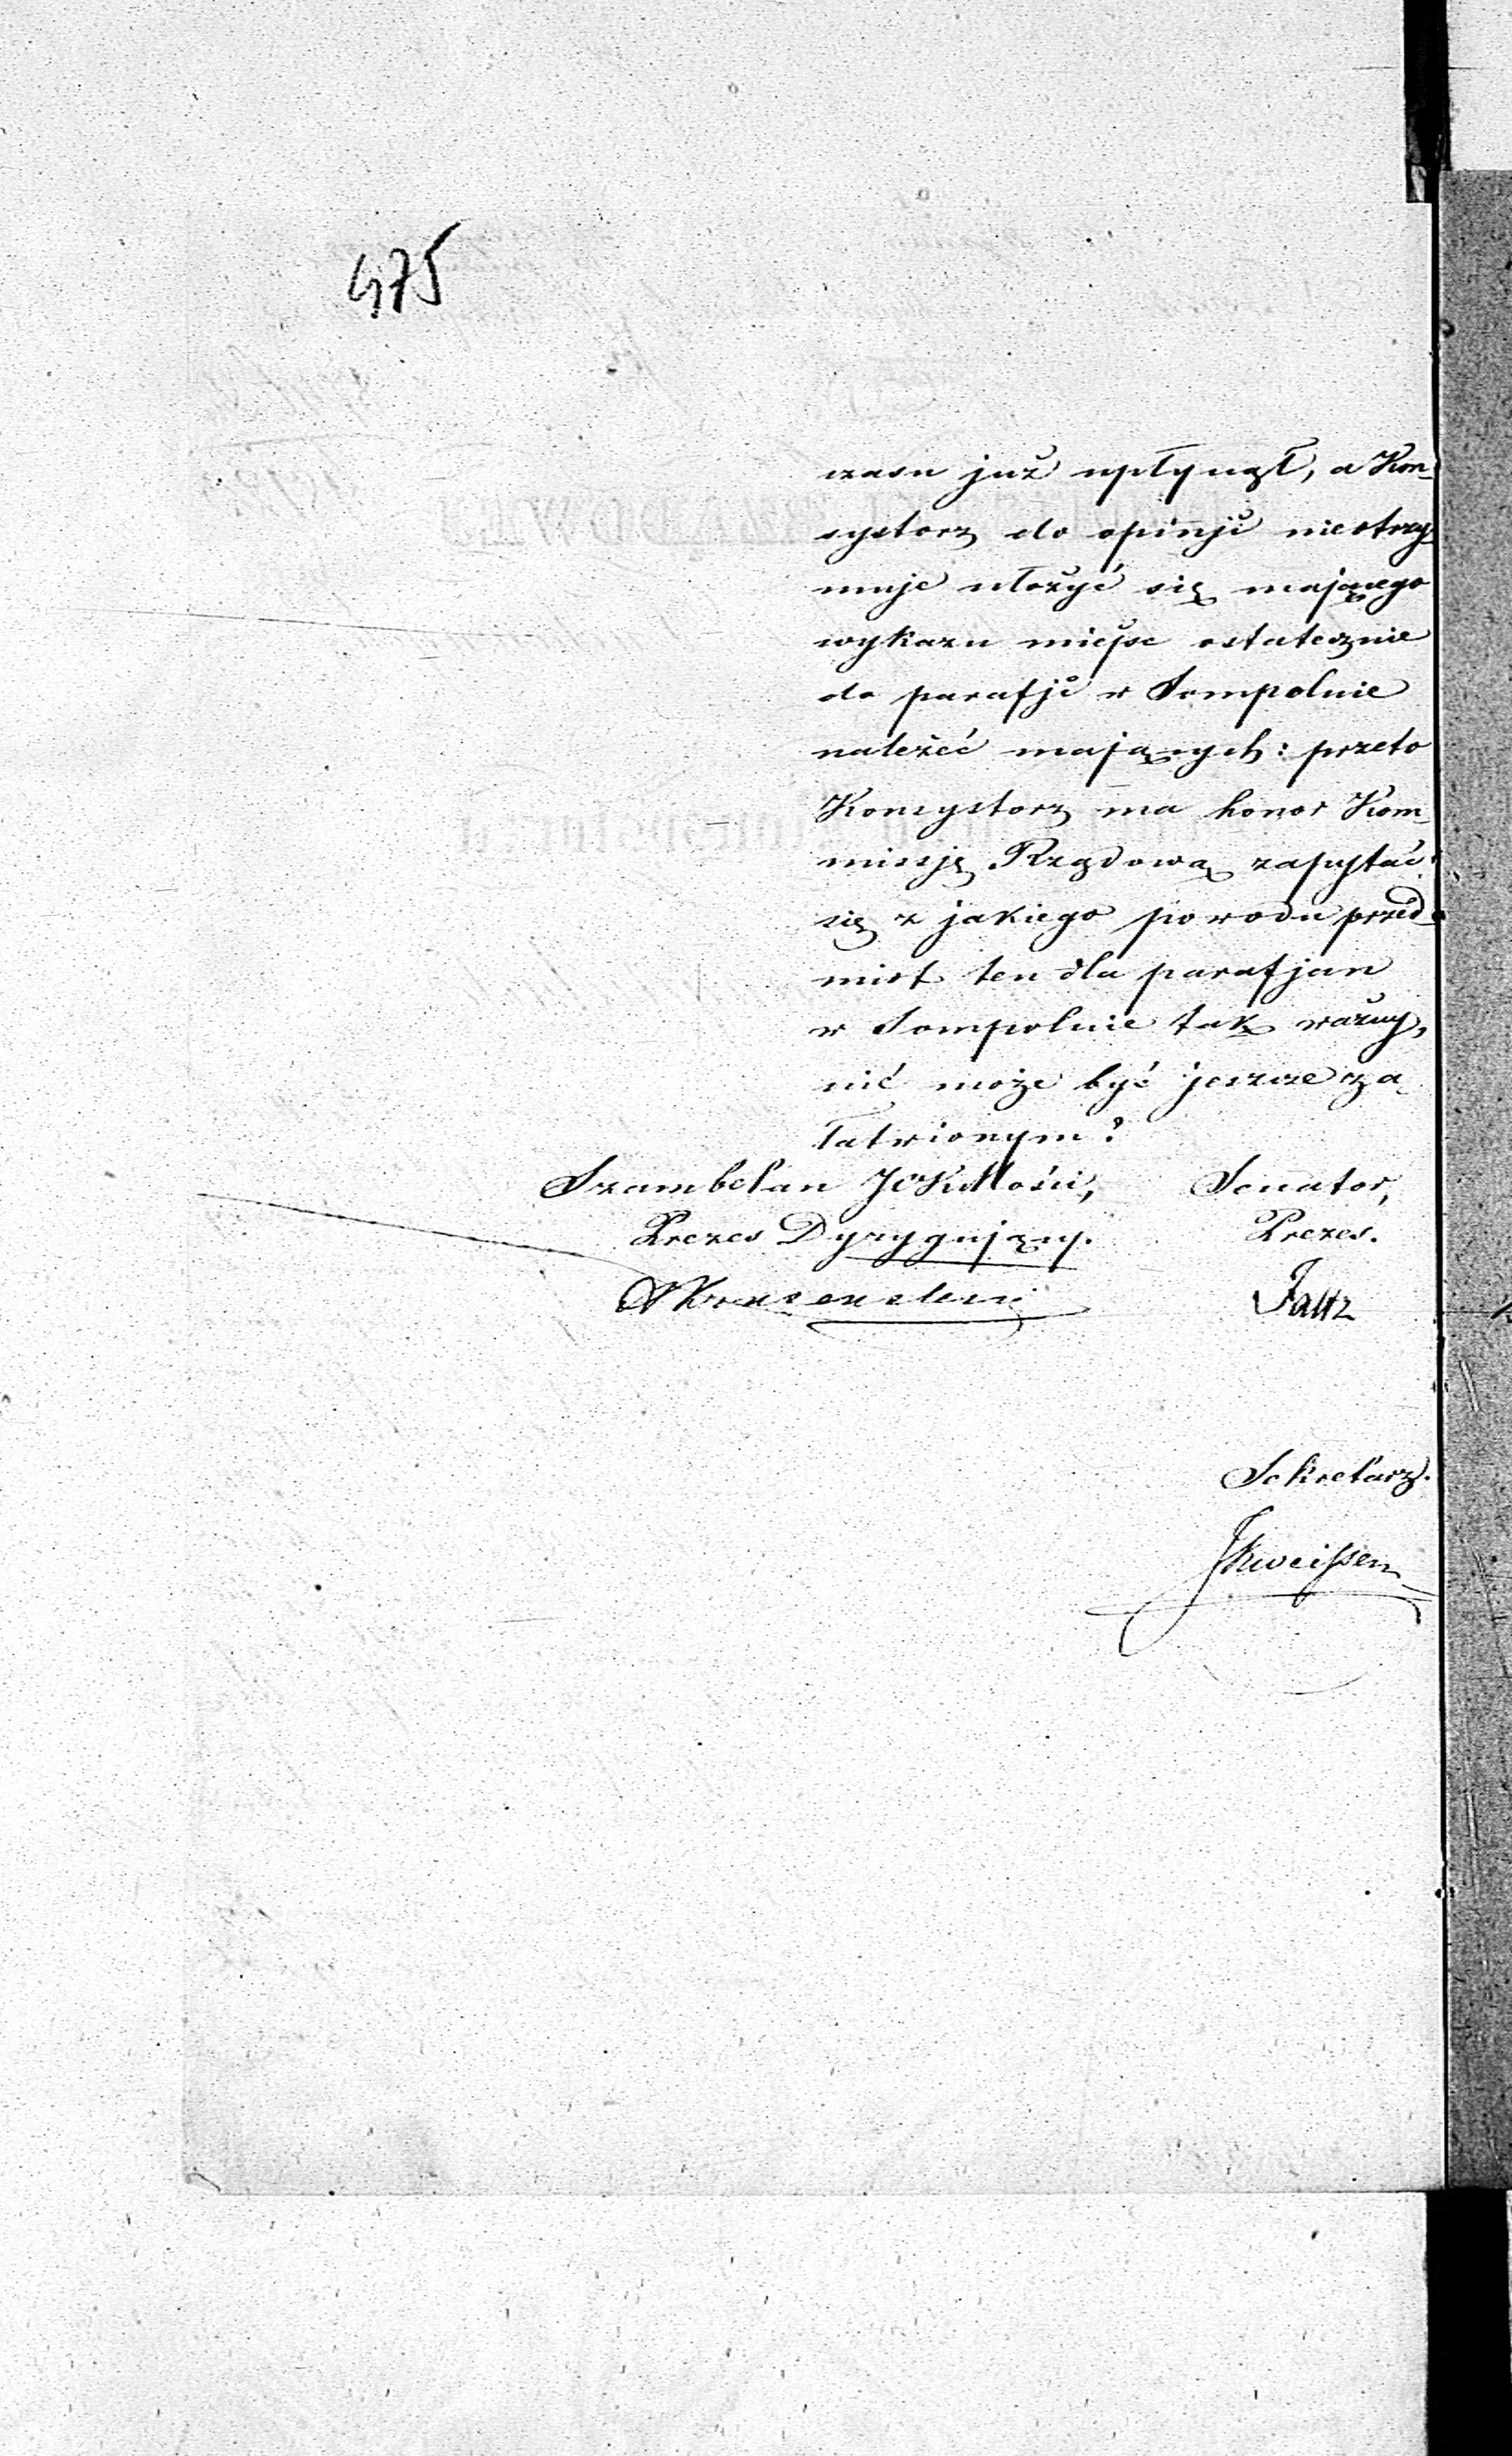 475
czasu już upłynął, a Kon-
systorz do opinji nieotrzy-
muje ułożyć się mającego
wykazu miejsc ostatecznie
do parafji w Sompolnie
należeć mających: przeto
Konsystorz ma honor Kom-
missję Rządową zapytać
się z jakiego powodu przed-
miot ten dla parafjan
w Sompolnie tak ważny,
nie może być jeszcze za-
łatwionym?
Szambelan JCKMości, Senator,
Prezes Dyrygujący. Prezes.
Faltz
Sekretarz.